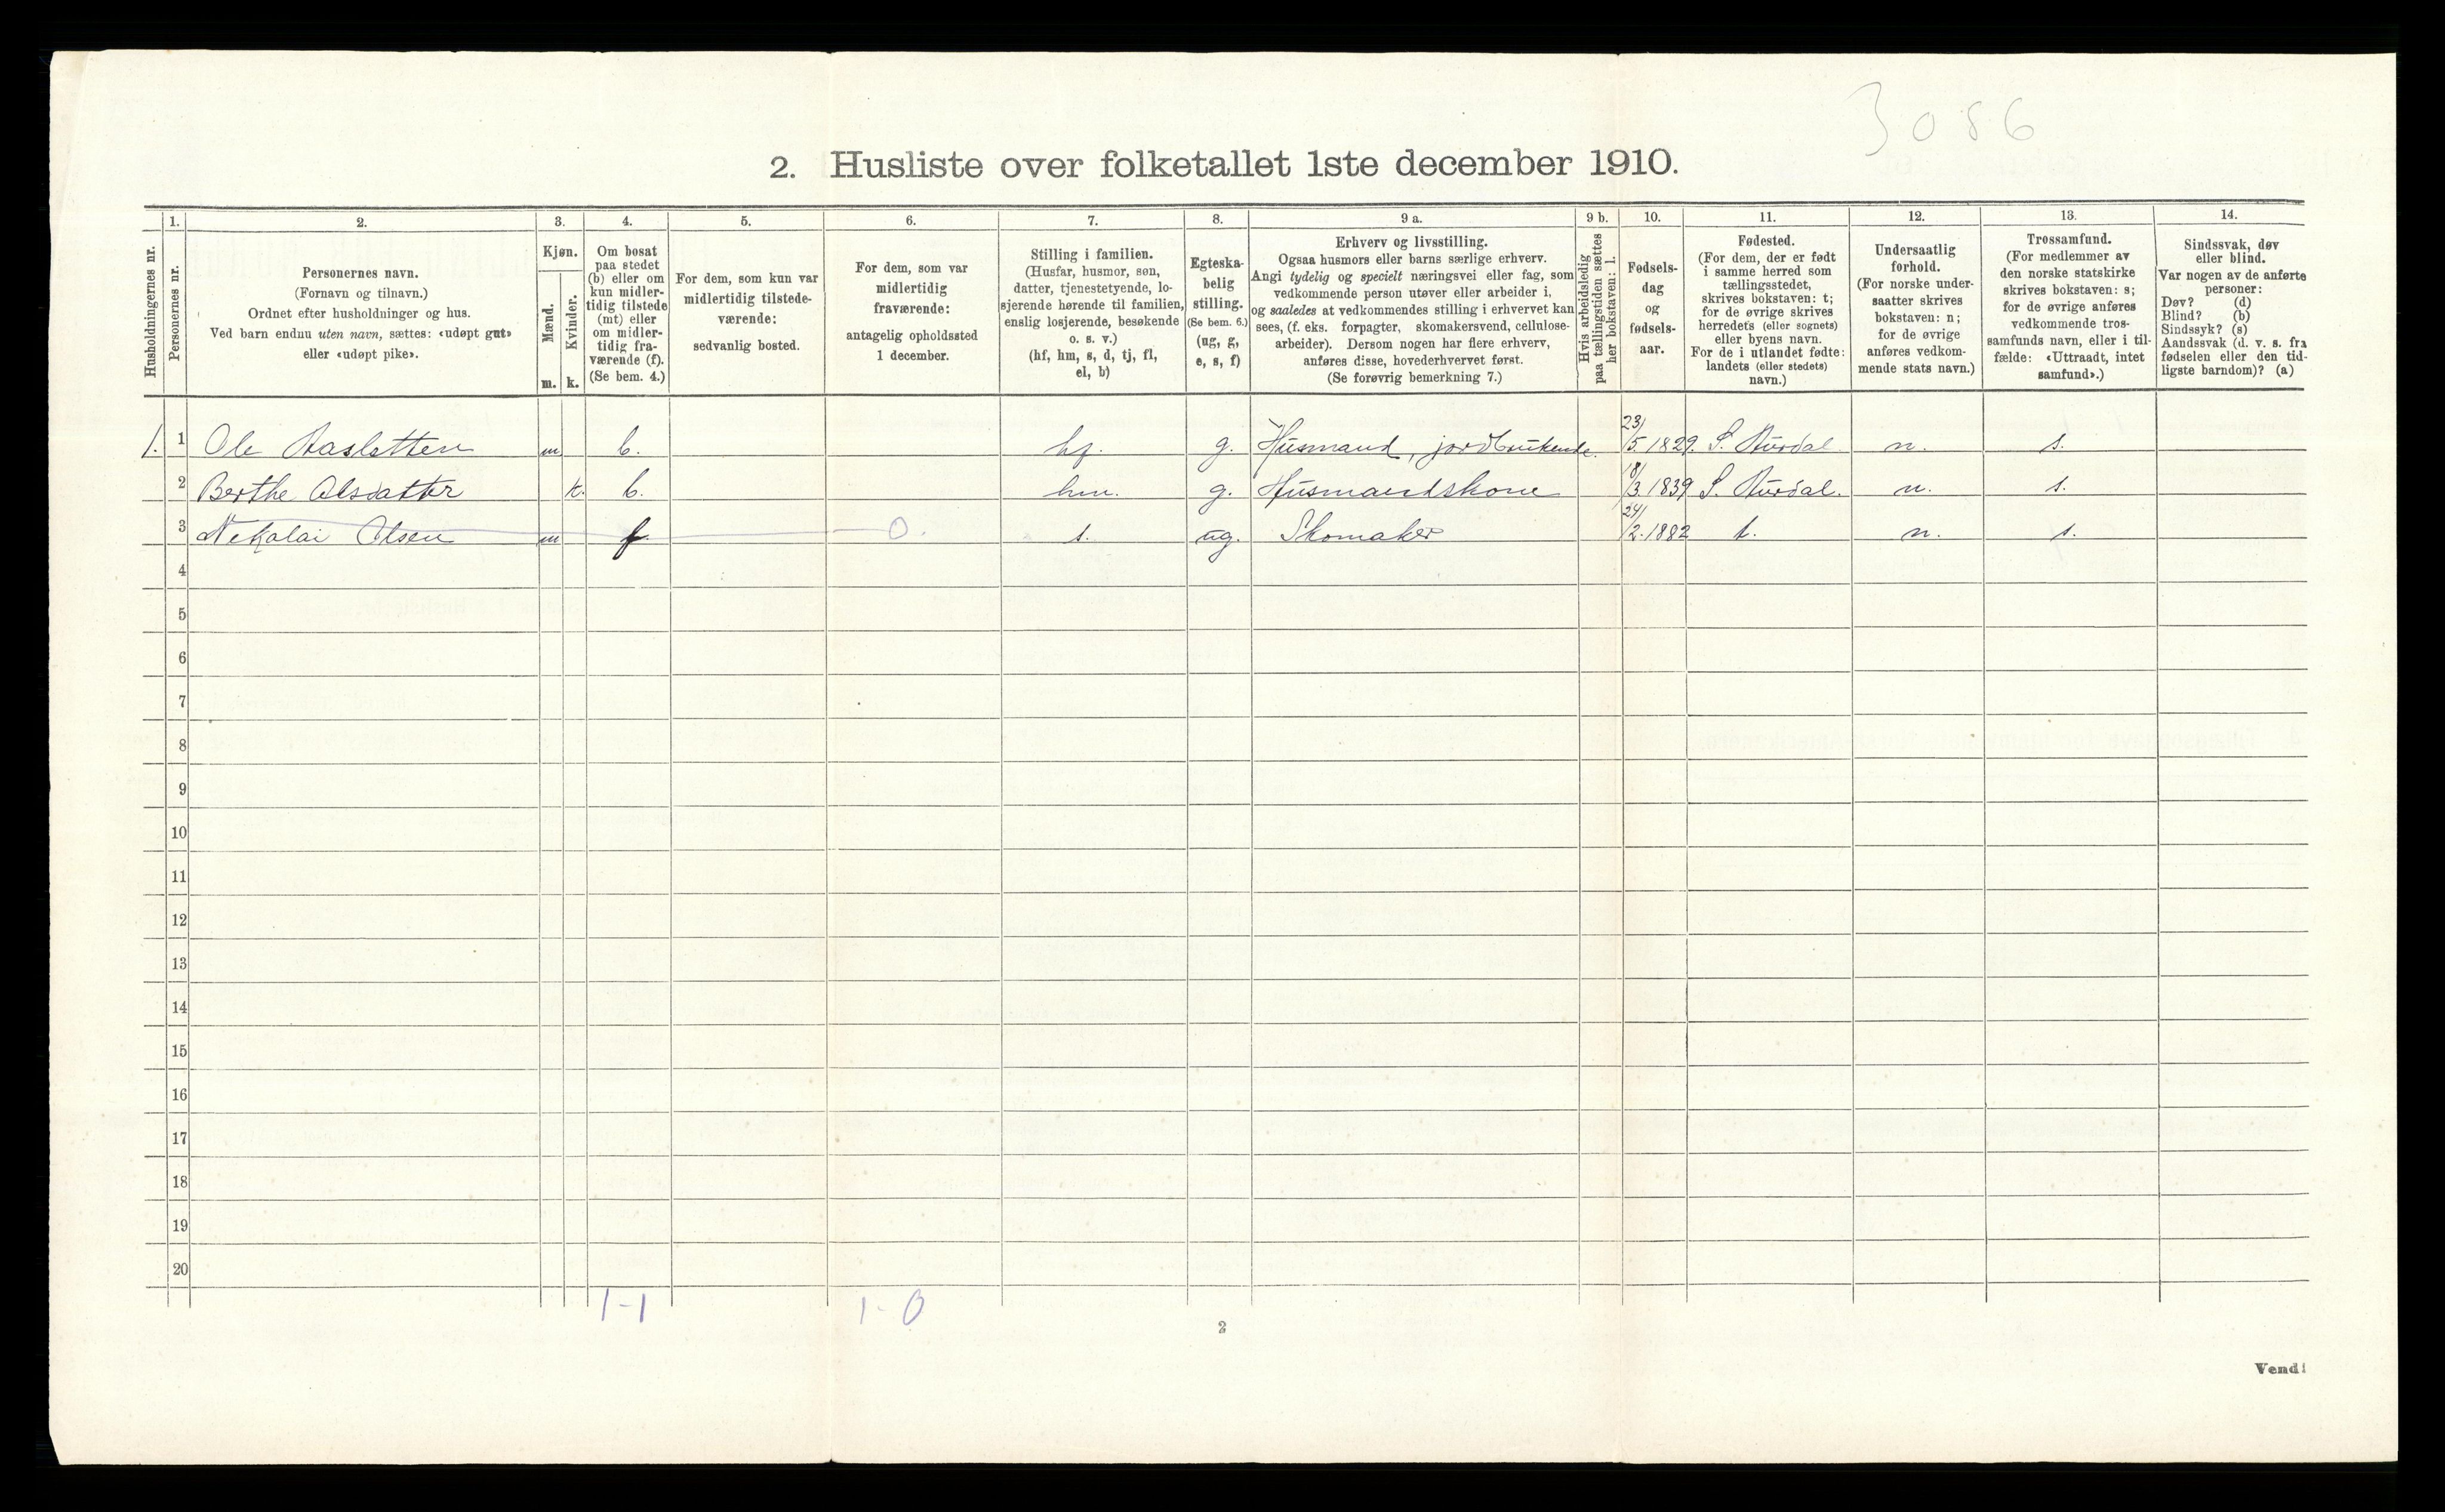 3086
2. Husliste over folketallet 1ste december 1910.
Husholdningernes nr.
1.
Personernes nr.
2.
Personernes navn.
(Fornavn og tilnavn.)
Ordnet efter husholdninger og hus.
Ved barn endnu uten navn, sættes: «udøpt gut»
eller «udøpt pike».
3.
Kjøn.
Mænd.
Kvinder.
m. k.
4.
Om bosat
paa stedet
(b) eller om
kun midler-
tidig tilstede
(mt) eller
om midler-
tidig fra-
værende (f).
(Se bem. 4.)
5.
For dem, som kun var
midlertidig tilstede-
værende:
sedvanlig bosted.
6.
For dem, som var
midlertidig
fraværende:
antagelig opholdssted
1 december.
7.
Stilling i familien.
(Husfar, husmor, søn,
datter, tjenestetyende, lo-
sjerende hørende til familien,
enslig losjerende, besøkende
o. s. v.)
(hf, hm, s, d, tj, fl,
el, b)
8.
Egteska-
belig
stilling.
(Se bem. 6.)
(ug, g,
e, s, f)
9 a.
Erhverv og livsstilling.
Ogsaa husmors eller barns særlige erhverv.
Angi tydelig og specielt næringsvei eller fag, som
vedkommende person utøver eller arbeider i,
og saaledes at vedkommendes stilling i erhvervet kan
sees, (f. eks. forpagter, skomakersvend, cellulose-
arbeider). Dersom nogen har flere erhverv,
anføres disse, hovederhvervet først.
(Se forøvrig bemerkning 7.)
9 b.
Hvis arbeidsledig
paa tællingstiden sættes
her bokstaven: l.
10.
Fødsels-
dag
og
fødsels-
aar.
11.
Fødested.
(For dem, der er født
i samme herred som
tællingsstedet,
skrives bokstaven: t;
for de øvrige skrives
herredets (eller sognets)
eller byens navn.
For de i utlandet fødte:
landets (eller stedets)
navn.)
12.
Undersaatlig
forhold.
(For norske under-
saatter skrives
bokstaven: n;
for de øvrige
anføres vedkom-
mende stats navn.)
13.
Trossamfund.
(For medlemmer av
den norske statskirke
skrives bokstaven: s;
for de øvrige anføres
vedkommende tros-
samfunds navn, eller i til-
fælde: «Uttraadt, intet
samfund».)
14.
Sindssvak, døv
eller blind.
Var nogen av de anførte
personer:
Døv? (d)
Blind? (b)
Sindssyk? (s)
Aandssvak (d. v. s. fra
fødselen eller den tid-
ligste barndom)? (a)
1. 1 Ole Aasletten m b. hf. g. Husmand, jordbrukende. 23/5.1829. S. Aurdal n. s.
2 Berthe Olsdatter k. b. hm. g. Husmandskone 18/3.1839 S. Aurdal. n. s.
3 Nekolai Olsen m f 0. s. ug. Skomaker 24/2.1882 t. n. s.
4
5
6
7
8
9
10
11
12
13
14
15
16
17
18
19
20
1-1 1-0
2
Vend!